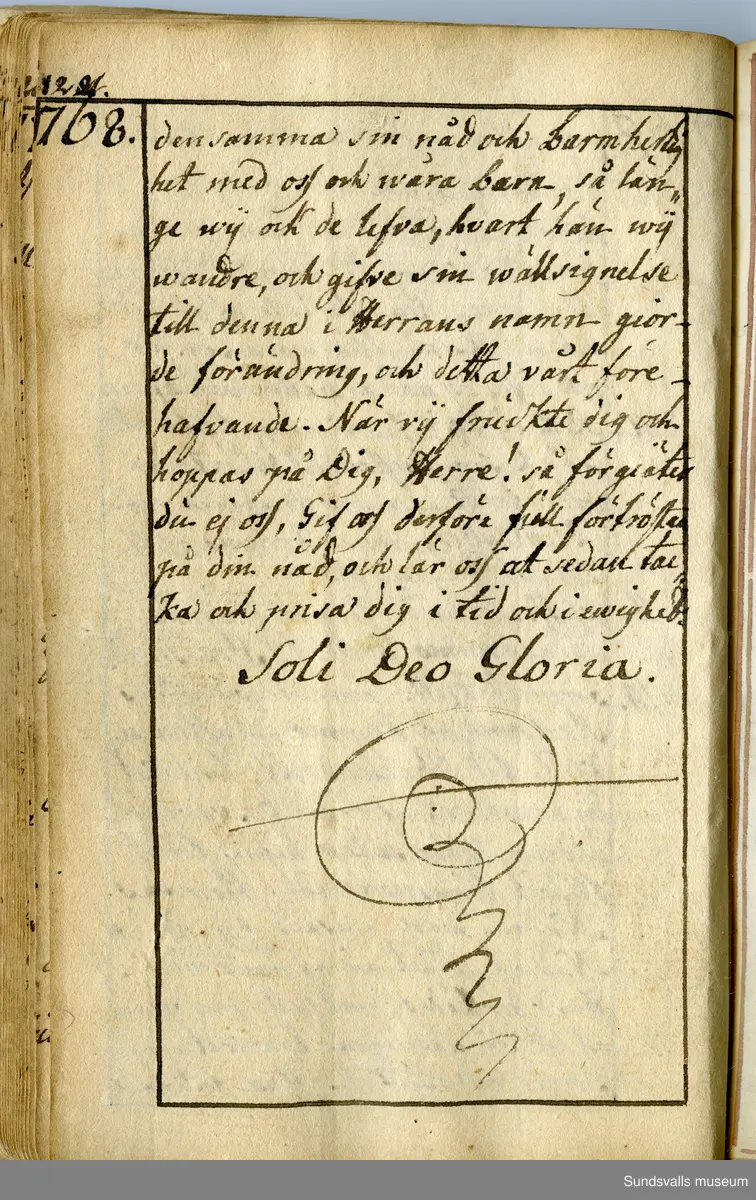 121.
768.
densamma sin nåd och barmhertig
het med oss och wåra barn, så län„
ge wÿ och de lefva, hvart hän wÿ
wandre, och gifve sin wälsignelse
till denna i Herrans namn gior-
de förändring, och detta vårt före-
hafvande. När vÿ frückte dig och
hoppas på Dig, Herre! så förgiäter
du ej oss, Gif oss derföre full förtröstan
på din nåd, och lär oss at sedan tac„
ka och prisa dig i tid och i ewighet.
Soli Deo Gloria.
Sundsvalls museum